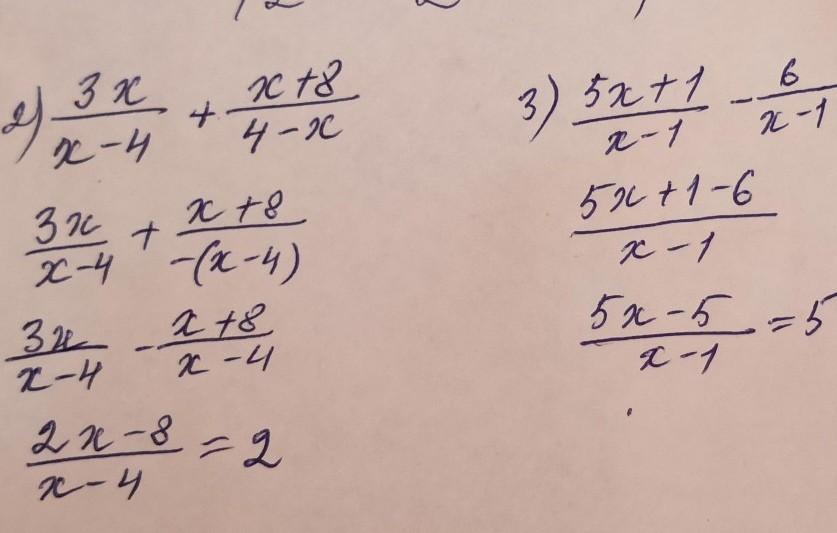 2) 3x/(x-4) + (x+8)/(4-x)
3x/(x-4) + (x+8)/(-(x-4))
3x/(x-4) - (x+8)/(x-4)
(2x-8)/(x-4) = 2
3) (5x+1)/(x-1) - 6/(x-1)
(5x+1-6)/(x-1)
(5x-5)/(x-1) = 5